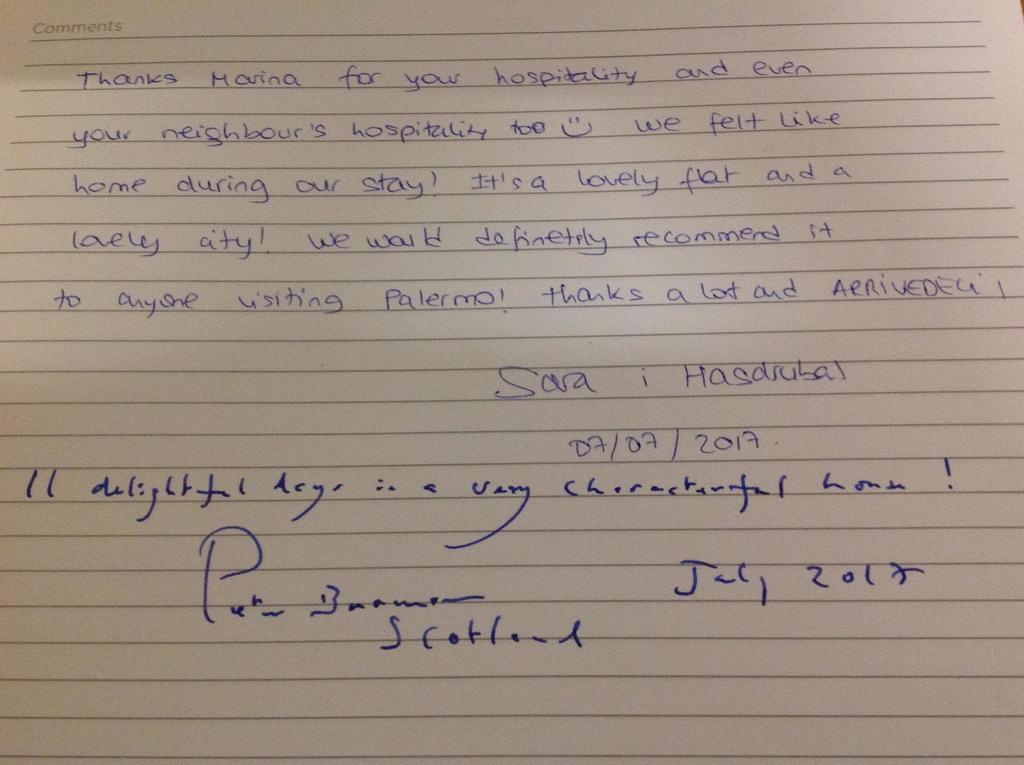 Comments
Thanks Marina for your hospitality and even
your neighbour's hospitality too we felt like
home during our stay! It's a lovely flat and a
lovely city! We would definetely recommend it
to anyone visiting Palermo! thanks a lot and ARRIVEDECI!
Sara i Hasdrubal
07/07/2017.
11 delightful days in a very characterful house!
Peter
July 2017
Scotland